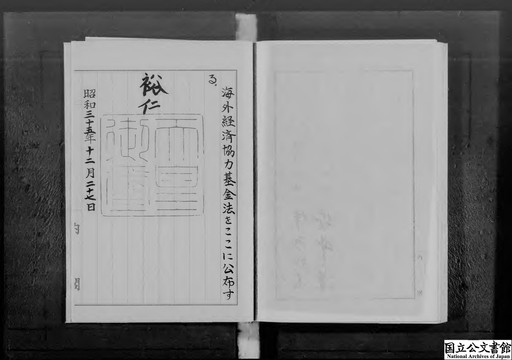 海外経済協力基金法をここに公布す
る。
裕仁
天皇御璽
昭和三十五年十二月二十七日
内閣
国立公文書館
National Archives of Japan